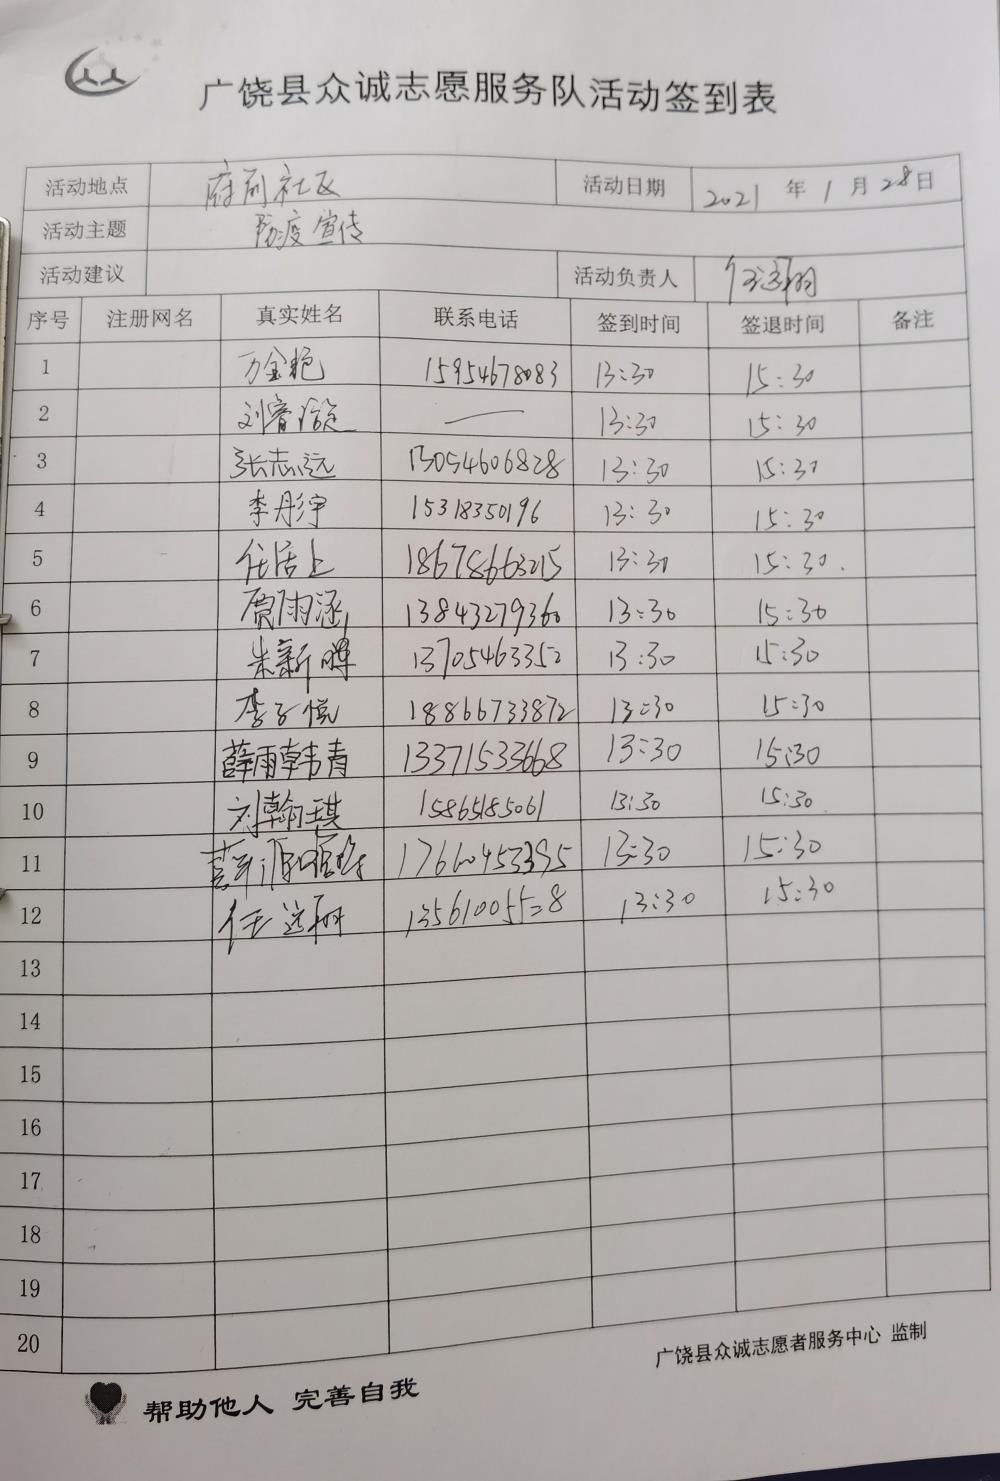 广饶县众诚志愿服务队活动签到表
活动地点 府前社区 活动日期 2021 年 1 月 28 日
活动主题 防疫宣传
活动建议 活动负责人 任远翔
序号 注册网名 真实姓名 联系电话 签到时间 签退时间 备注
1 万金艳 15954678083 13:30 15:30
2 刘睿 — 13:30 15:30
3 张志远 13054606828 13:30 15:30
4 李彤宇 15318350196 13:30 15:30
5 任居上 18678663215 13:30 15:30.
6 贾雨涵 13843279360 13:30 15:30
7 朱新晖 13705463352 13:30 15:30
8 李子悦 18866733872 13:30 15:30
9 薛雨韩青 13371533668 13:30 15:30
10 刘翰琪 15865185061 13:30 15:30
11 17660453395 13:30 15:30
12 任远翔 13561005528 13:30 15:30
13
14
15
16
17
18
19
20
广饶县众诚志愿者服务中心 监制
帮助他人 完善自我